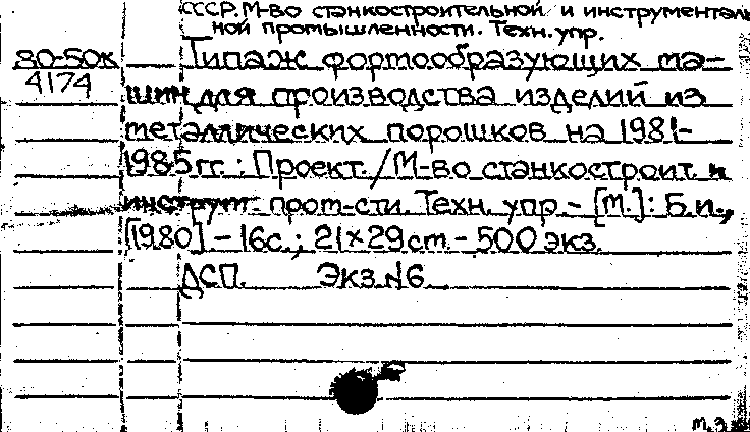 СССР. М-во станкостроительной и инструменталь
ной промышленности. Техн. упр.
80-50к Типаж формообразующих ма-
4174
шин для производства изделий из
металлических порошков на 1981-
1985 гг. : Проект. / М-во станкостроит. и
инструм. пром-сти. Техн. упр. - [М.]: Б.и.,
[1980]. - 16с.; 21×29см - 500 экз.
ДСП. Экз. №6